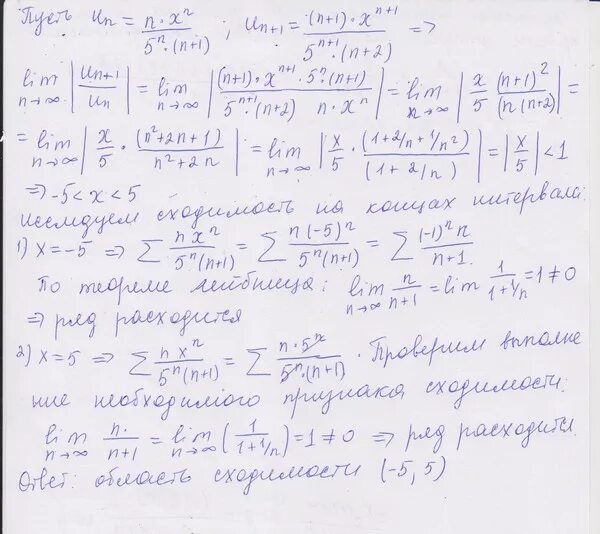 Пусть Uₙ = n·xⁿ / 5ⁿ·(n+1) ; Uₙ₊₁ = (n+1)·xⁿ⁺¹ / 5ⁿ⁺¹·(n+2) =>
lim n→∞ |Uₙ₊₁ / Uₙ| = lim n→∞ |(n+1)·xⁿ⁺¹·5ⁿ·(n+1) / 5ⁿ⁺¹·(n+2) n·xⁿ| = lim n→∞ |x/5 (n+1)² / (n(n+2))| =
= lim n→∞ |x/5 · (n²+2n+1) / n²+2n| = lim n→∞ |x/5 · (1+2/n+1/n²) / (1+2/n)| = |x/5| < 1
=> -5 < x < 5
исследуем сходимость на концах интервала:
1) x=-5 => ∑ n xⁿ / 5ⁿ(n+1) = ∑ n(-5)ⁿ / 5ⁿ(n+1) = ∑ (-1)ⁿ n / n+1.
По теореме лейбница: lim n→∞ n / n+1 = lim 1 / 1+1/n = 1 ≠ 0
=> ряд расходится
2) x=5 => ∑ n xⁿ / 5ⁿ(n+1) = ∑ n·5ⁿ / 5ⁿ·(n+1) · Проверим выполне
ние необходимого признака сходимости:
lim n→∞ n / n+1 = lim n→∞ (1 / 1+1/n) = 1 ≠ 0 => ряд расходится.
Ответ: область сходимости (-5, 5)